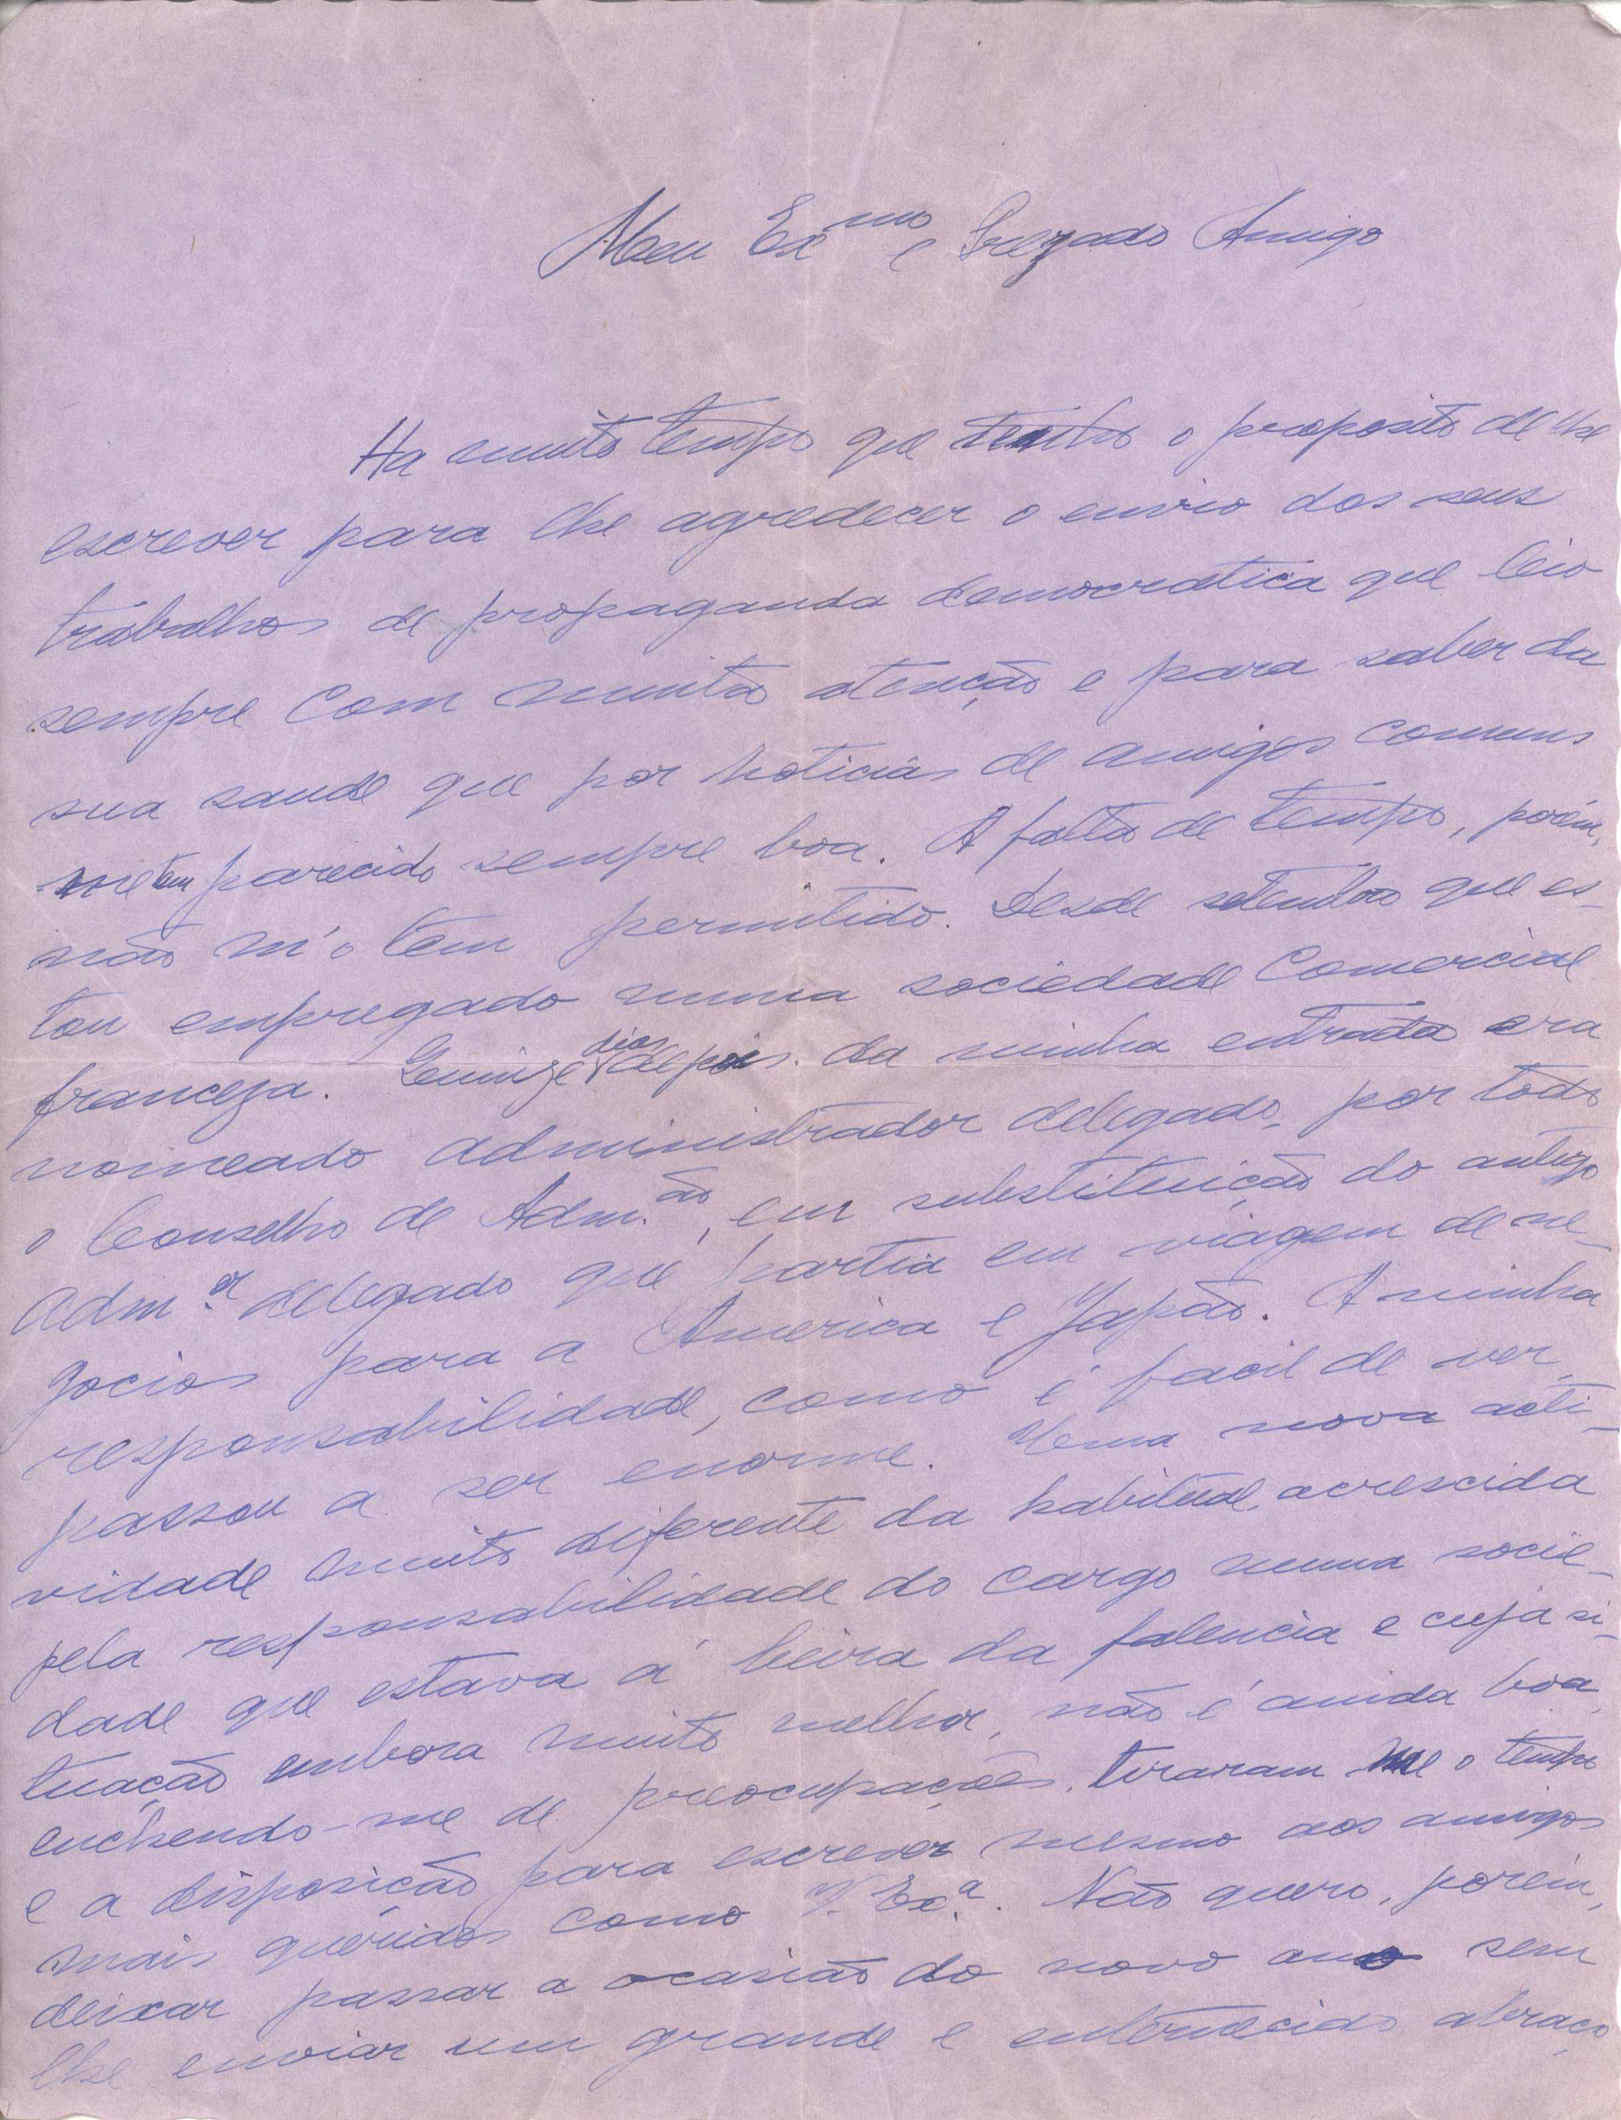 Meu Ex.mo e Prezado Amigo
Ha muito tempo que tenho o proposito de lhe
escrever para lhe agredecer o envio dos seus
trabalhos de propaganda democratica que leio
sempre com muita atenção e para saber da
sua saude que por noticias de amigos comuns
me tem parecido sempre boa. A falta de tempo, porém,
não m'o tem permitido. Desde setembro que es-
tou empregado numa sociedade comercial
franceza. Quinze dias depois da minha entrada era
nomeado administrador delegado, por todo
o Conselho de Adm.ão, em substituição do antigo
Adm.or delegado que partia em viagem de ne-
gocios para a America e Japão. A minha
responsabilidade, como é facil de ver,
passou a ser enorme. Uma nova acti-
vidade muito diferente da habitual, acrescida
pela responsabilidade do cargo numa socie-
dade que estava á beira da falencia e cuja si-
tuação embora muito melhor, não é ainda boa,
enchendo-me de preocupações, tiraram-me o tempo
e a disposição para escrever mesmo aos amigos
mais queridos como V. Ex.a. Não quero, porém,
deixar passar a ocasião do novo ano sem
lhe enviar um grande e enternecido abraço